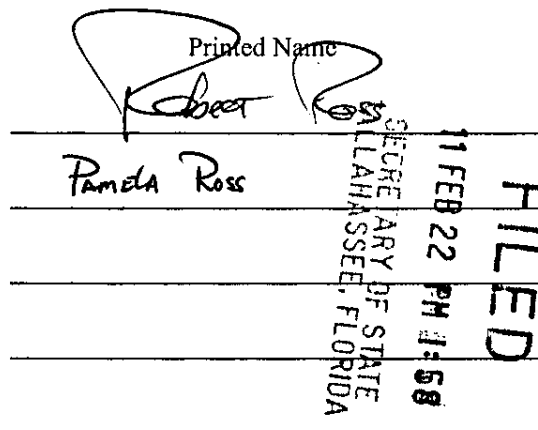 Printed Name
Robert Ross
PAMELA Ross
FILED
11 FEB 22 PM 1:58
SECRETARY OF STATE
TALLAHASSEE, FLORIDA